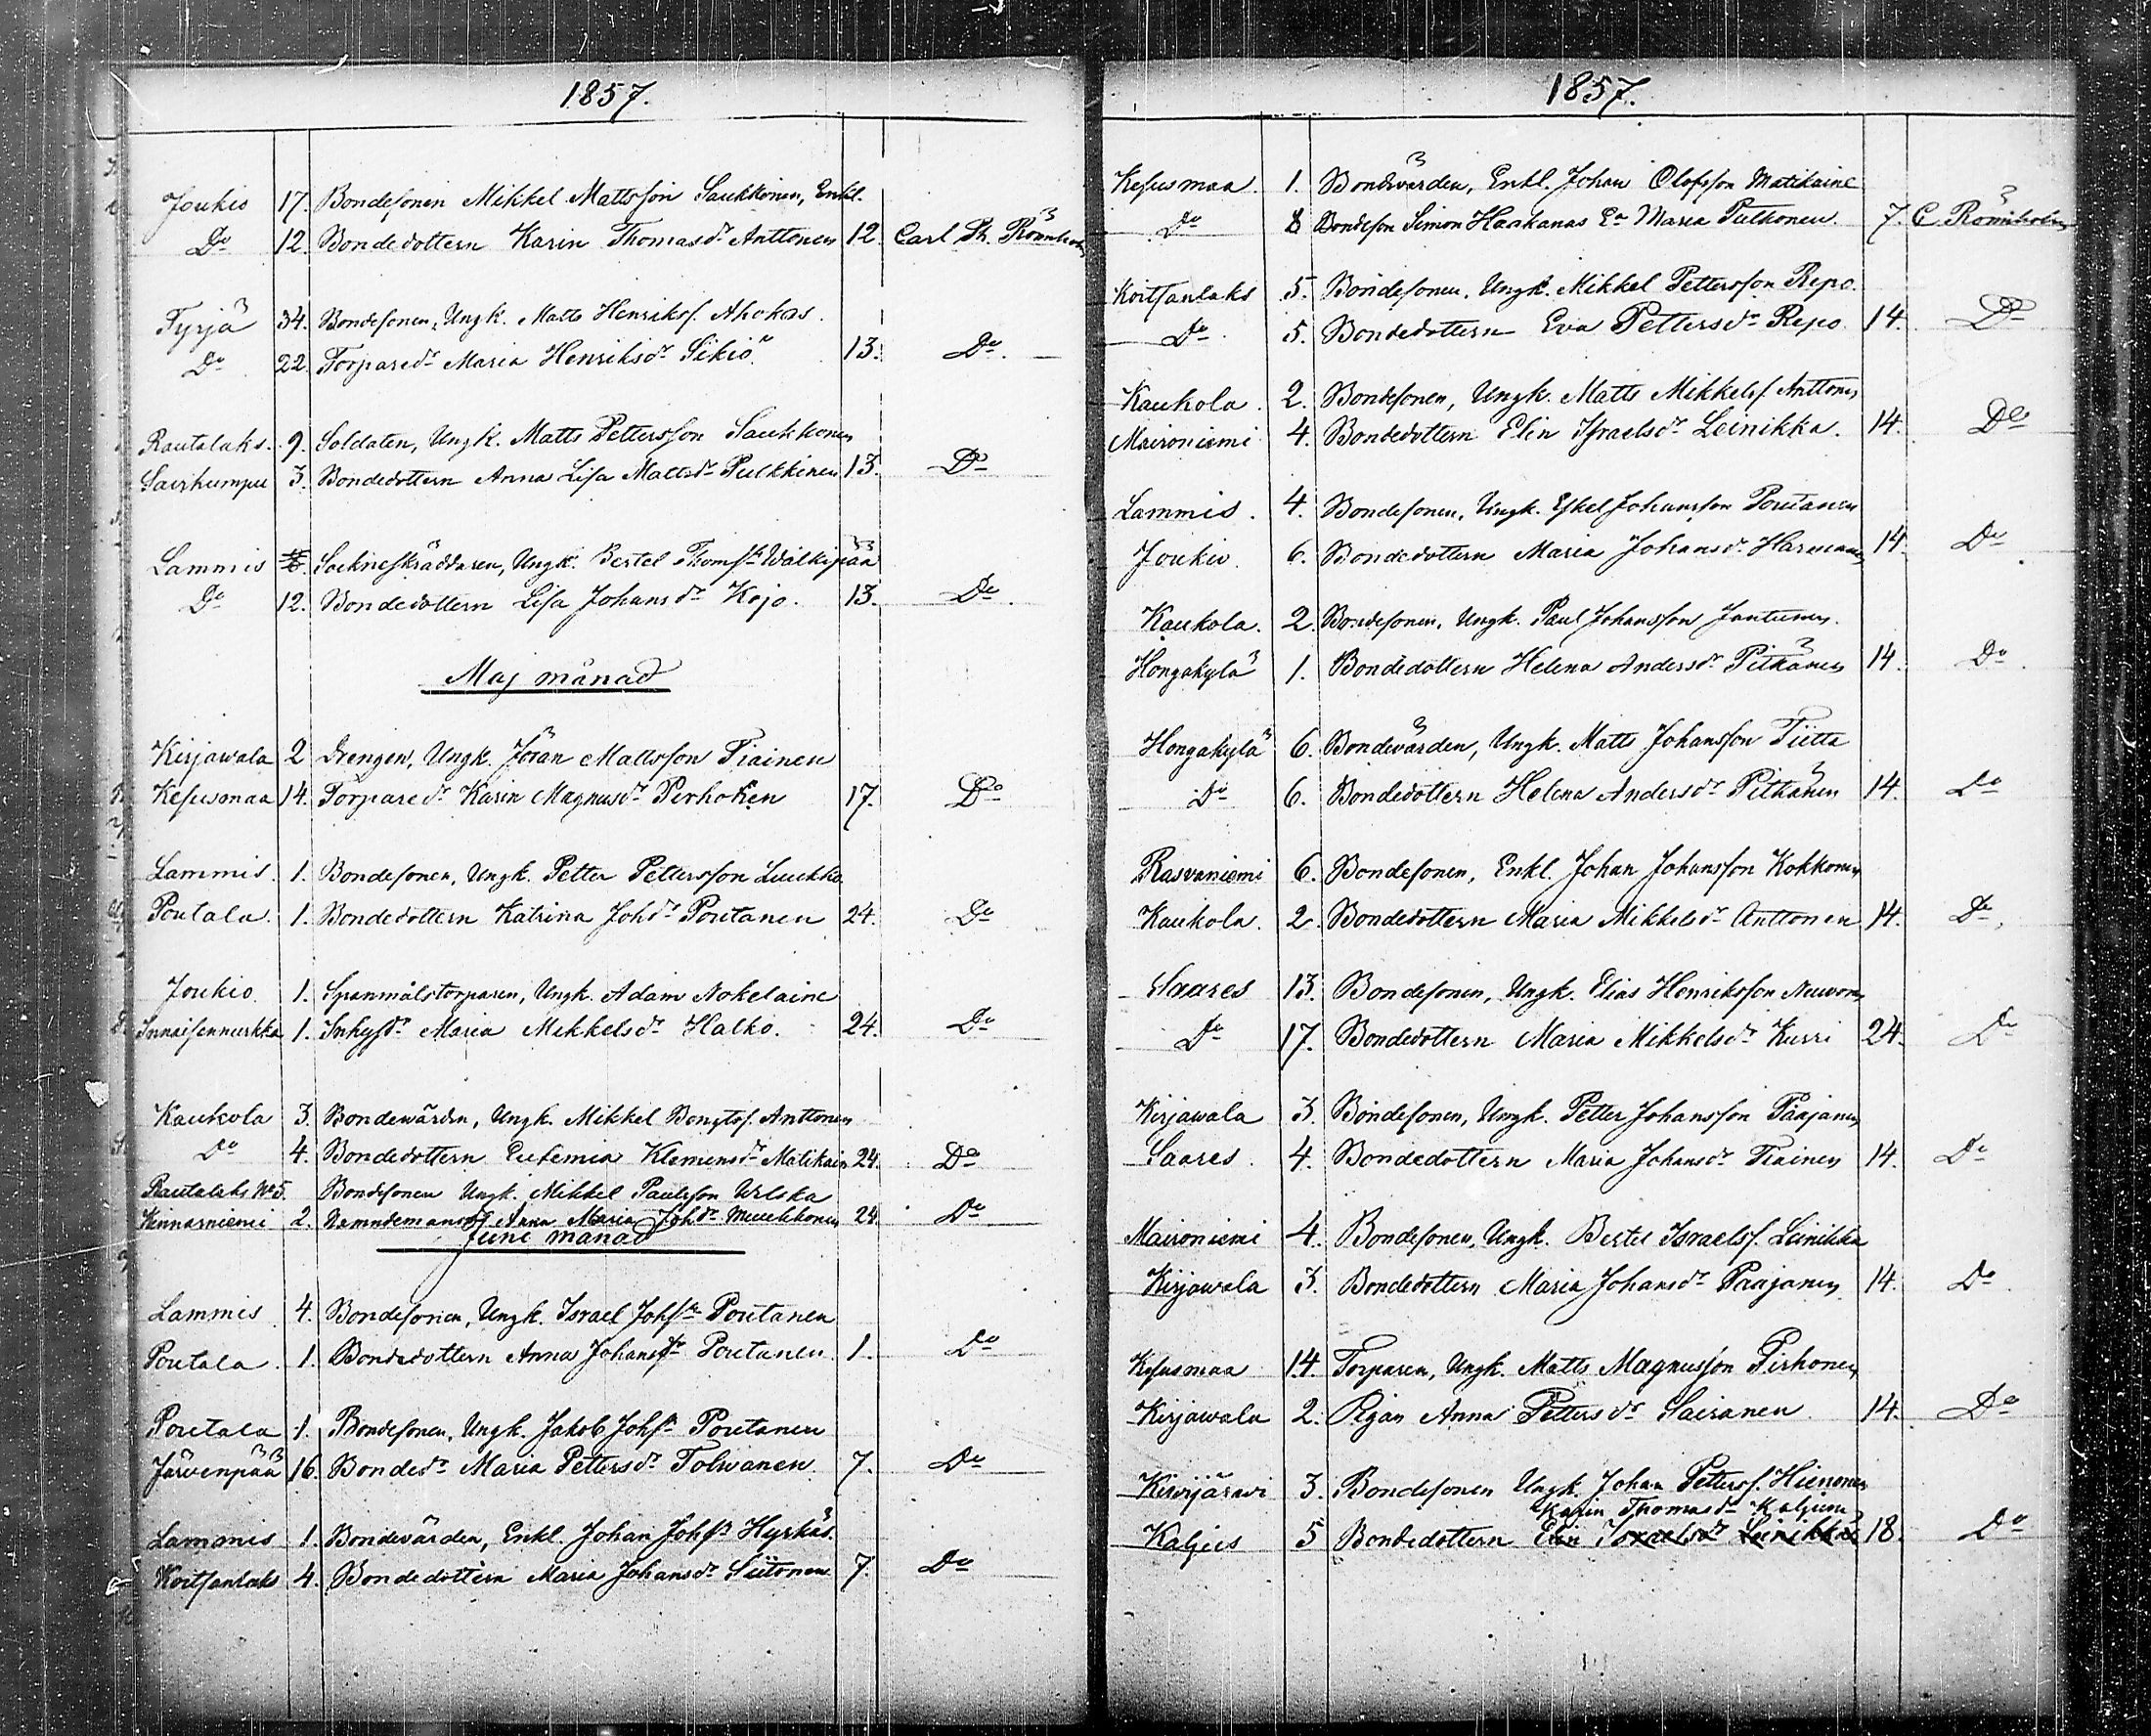 1857.
Joukio 17. Bondesonen Mikkel Mattsson Saukkonen, Enkl.
Do 12. Bondedottern Karin Thomasdr Anttonen 12. Carl Rönnholm
Tyrjä 34. Bondesonen, Ungk. Matts Henriks. Ahokas.
Do 22. Torparedr Maria Henriksdr Sikiö 13. Do
Rautalaks. 9. Soldaten, Ungk. Matts Pettersson Saukkonen
Sairhumpu 3. Bondedottern Anna Lisa Mattsdr Pulkkinen 13. Do
Lammis Sockneskräddaren, Ungk. Bertel Thomsn Wälkipää
Do 12. Bondedottern Lisa Johansdr Kojo. 13. Do
Maj månad
Kirjawala 2 Drengen, Ungk. Jöran Mattsson Tiainen
Kesusmaa 14. Torparedr Karin Magnusdr Perhoken 17. Do
Lammis. 1. Bondesonen, Ungk. Petter Pettersson Luukko
Poutala. 1. Bondedottern Katrina Johdr Poutanen 24. Do
Joukio 1. Spanmålstorparen, Ungk. Adam Nokelaine
Innaisennurkka 1. Inhysdr Maria Mikkelsdr Halko. 24. Do
Kaukola 3. Bondewärden, Ungk. Mikkel Bengtss. Anttonen
Do 4. Bondedottern Eufemia Klemensdr Matikain 24. Do
Rautalaks No 5. Bondesonen Ungk. Mikkel Paulsson Urlska
Kinnarniemi 2. Nämndemansd. Anna Maria Johdr Muukkonen 24. Do
Juni månad
Lammis 4. Bondesonen, Ungk. Israel Johsn Poutanen
Poutala. 1. Bondedottern Anna Johansdr Poutanen 1. Do
Poutala 1. Bondesonen, Ungk. Jakob Johsn Poutanen
Järvenpää 16. Bondedr Maria Pettersdr Tolwanen 7. Do
Lammis 1. Bondevärden, Enkl. Johan Johsn Hyrkäs.
Koitsanlaks 4. Bondedottern Maria Johansdr Siitonen 7. Do
1857.
Kesusmaa 1. Bondvärden, Enkl. Johan Olofsson Matikaine
Do 8 Bondeson Simon Haakanas Ea Maria Pulkonen. 7. C Rönnholm
Koitsanlaks 5. Bondesonen, Ungk. Mikkel Pettersson Repo.
Do 5. Bondedottern Eva Pettersdr Repo 14. Do
Kaukola. 2. Bondesonen, Ungk. Matts Mikkels. Anttonen
Maironiemi 4. Bondedottern Elin Israelsdr Leinikka. 14. Do
Lammis. 4. Bondesonen, Ungk. Eskel Johansson Poutanen
Joukio. 6. Bondedottern Maria Johansdr Harmanen 14. Do
Kaukola. 2. Bondesonen, Ungk. Paul Johansson Jantunen.
Hongakylä 1. Bondedottern Helena Andersdr Pitkänen 14. Do
Hongakylä 6. Bondevärden, Ungk. Matts Johansson Tiitta
Do 6. Bondedottern Helena Andersdr Pitkänen 14. Do
Rasvaniemi 6. Bondesonen, Enkl. Johan Johansson Kokkonen
Kaukola. 2. Bondedottern Maria Mikkelsdr Anttonen 14. Do
Saares 13. Bondesonen, Ungk. Elias Henriksson Neuvonen
Do 17. Bondedottern Maria Mikkelsdr Kurri 24. Do
Kirjawala 3. Bondesonen, Ungk. Petter Johansson Paajanen
Saares. 4. Bondedottern Maria Johansdr Tiainen 14. Do
Maironiemi 4. Bondesonen, Ungk. Bertel Israelss. Leinikka
Kirjawala 3. Bondedottern Maria Johansdr Paajanen 14. Do
Kesusmaa 14. Torparen, Ungk. Matts Magnusson Pirhonen
Kirjawala 2. Pigan Anna Pettersdr Sairanen 14. Do
Kirvijärwi 3. Bondesonen Ungk. Johan Petterss. Hienonen
Karin Thomasdr Kaljunen
Kaljus 5 Bondedottern Elin Israelsdr Leinikka 18. Do